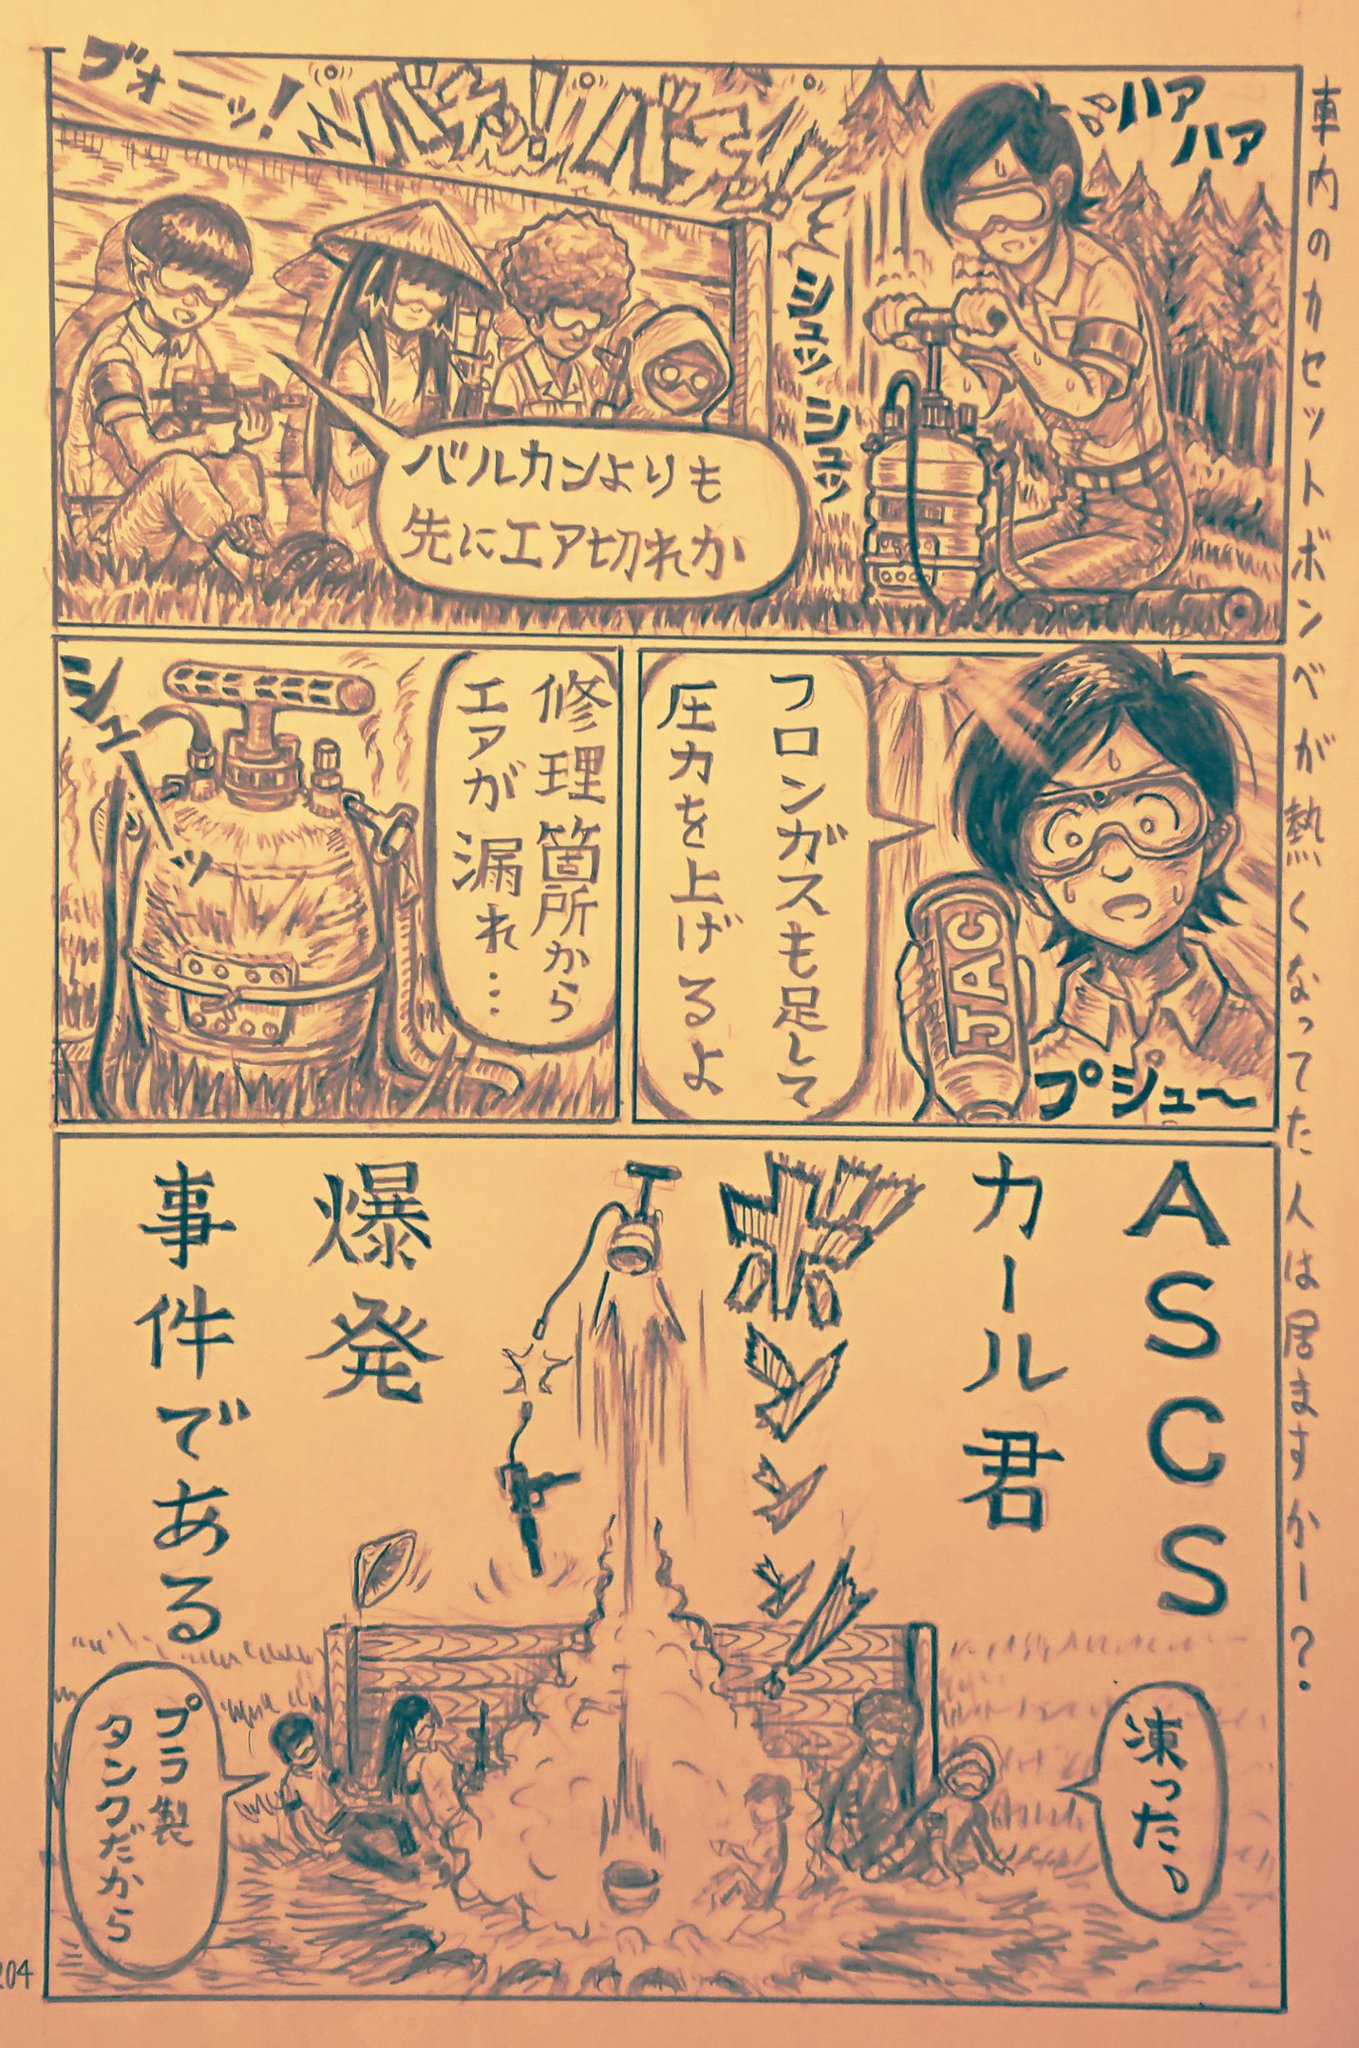 車内のカセットボンベが熱くなってた人は居ますかー?
ハア
ハア
シュッ
シュッ
バチッ!
バチッ!
ブォーッ!
バルカンよりも
先にエア切れか
フロンガスも足して
圧力を上げるよ
JAC
プシュ〜
修理箇所から
エアが漏れ…
シューッ
ASCS
カール君
ボンッ
爆発
事件である
凍った。
プラ製
タンクだから
204